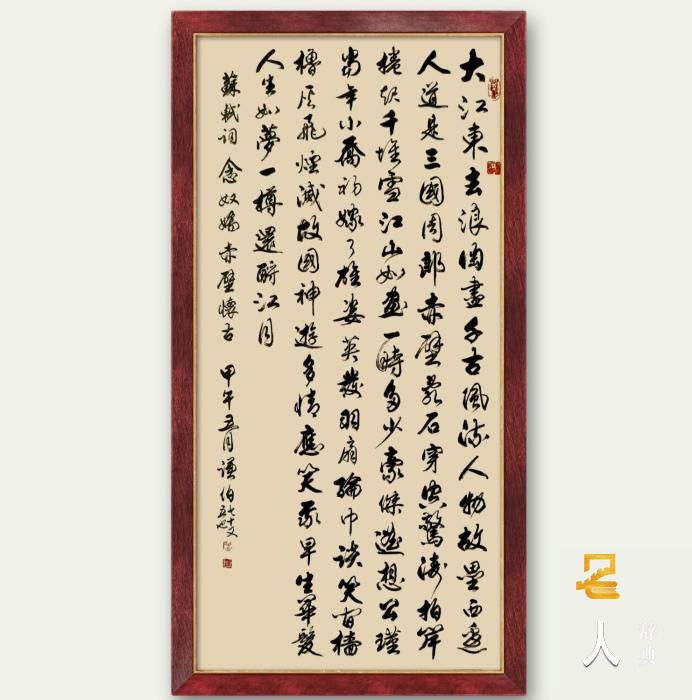 大江東去浪淘盡千古風流人物故壘西邊
人道是三國周郎赤壁亂石穿空驚濤拍岸
捲起千堆雪江山如畫一時多少豪傑遙想公瑾
當年小喬初嫁了雄姿英發羽扇綸巾談笑間檣
櫓灰飛煙滅故國神遊多情應笑我早生華髮
人生如夢一樽還酹江月
蘇軾詞 念奴嬌 赤壁懷古 甲午五月謙伯七十又
人
辭典